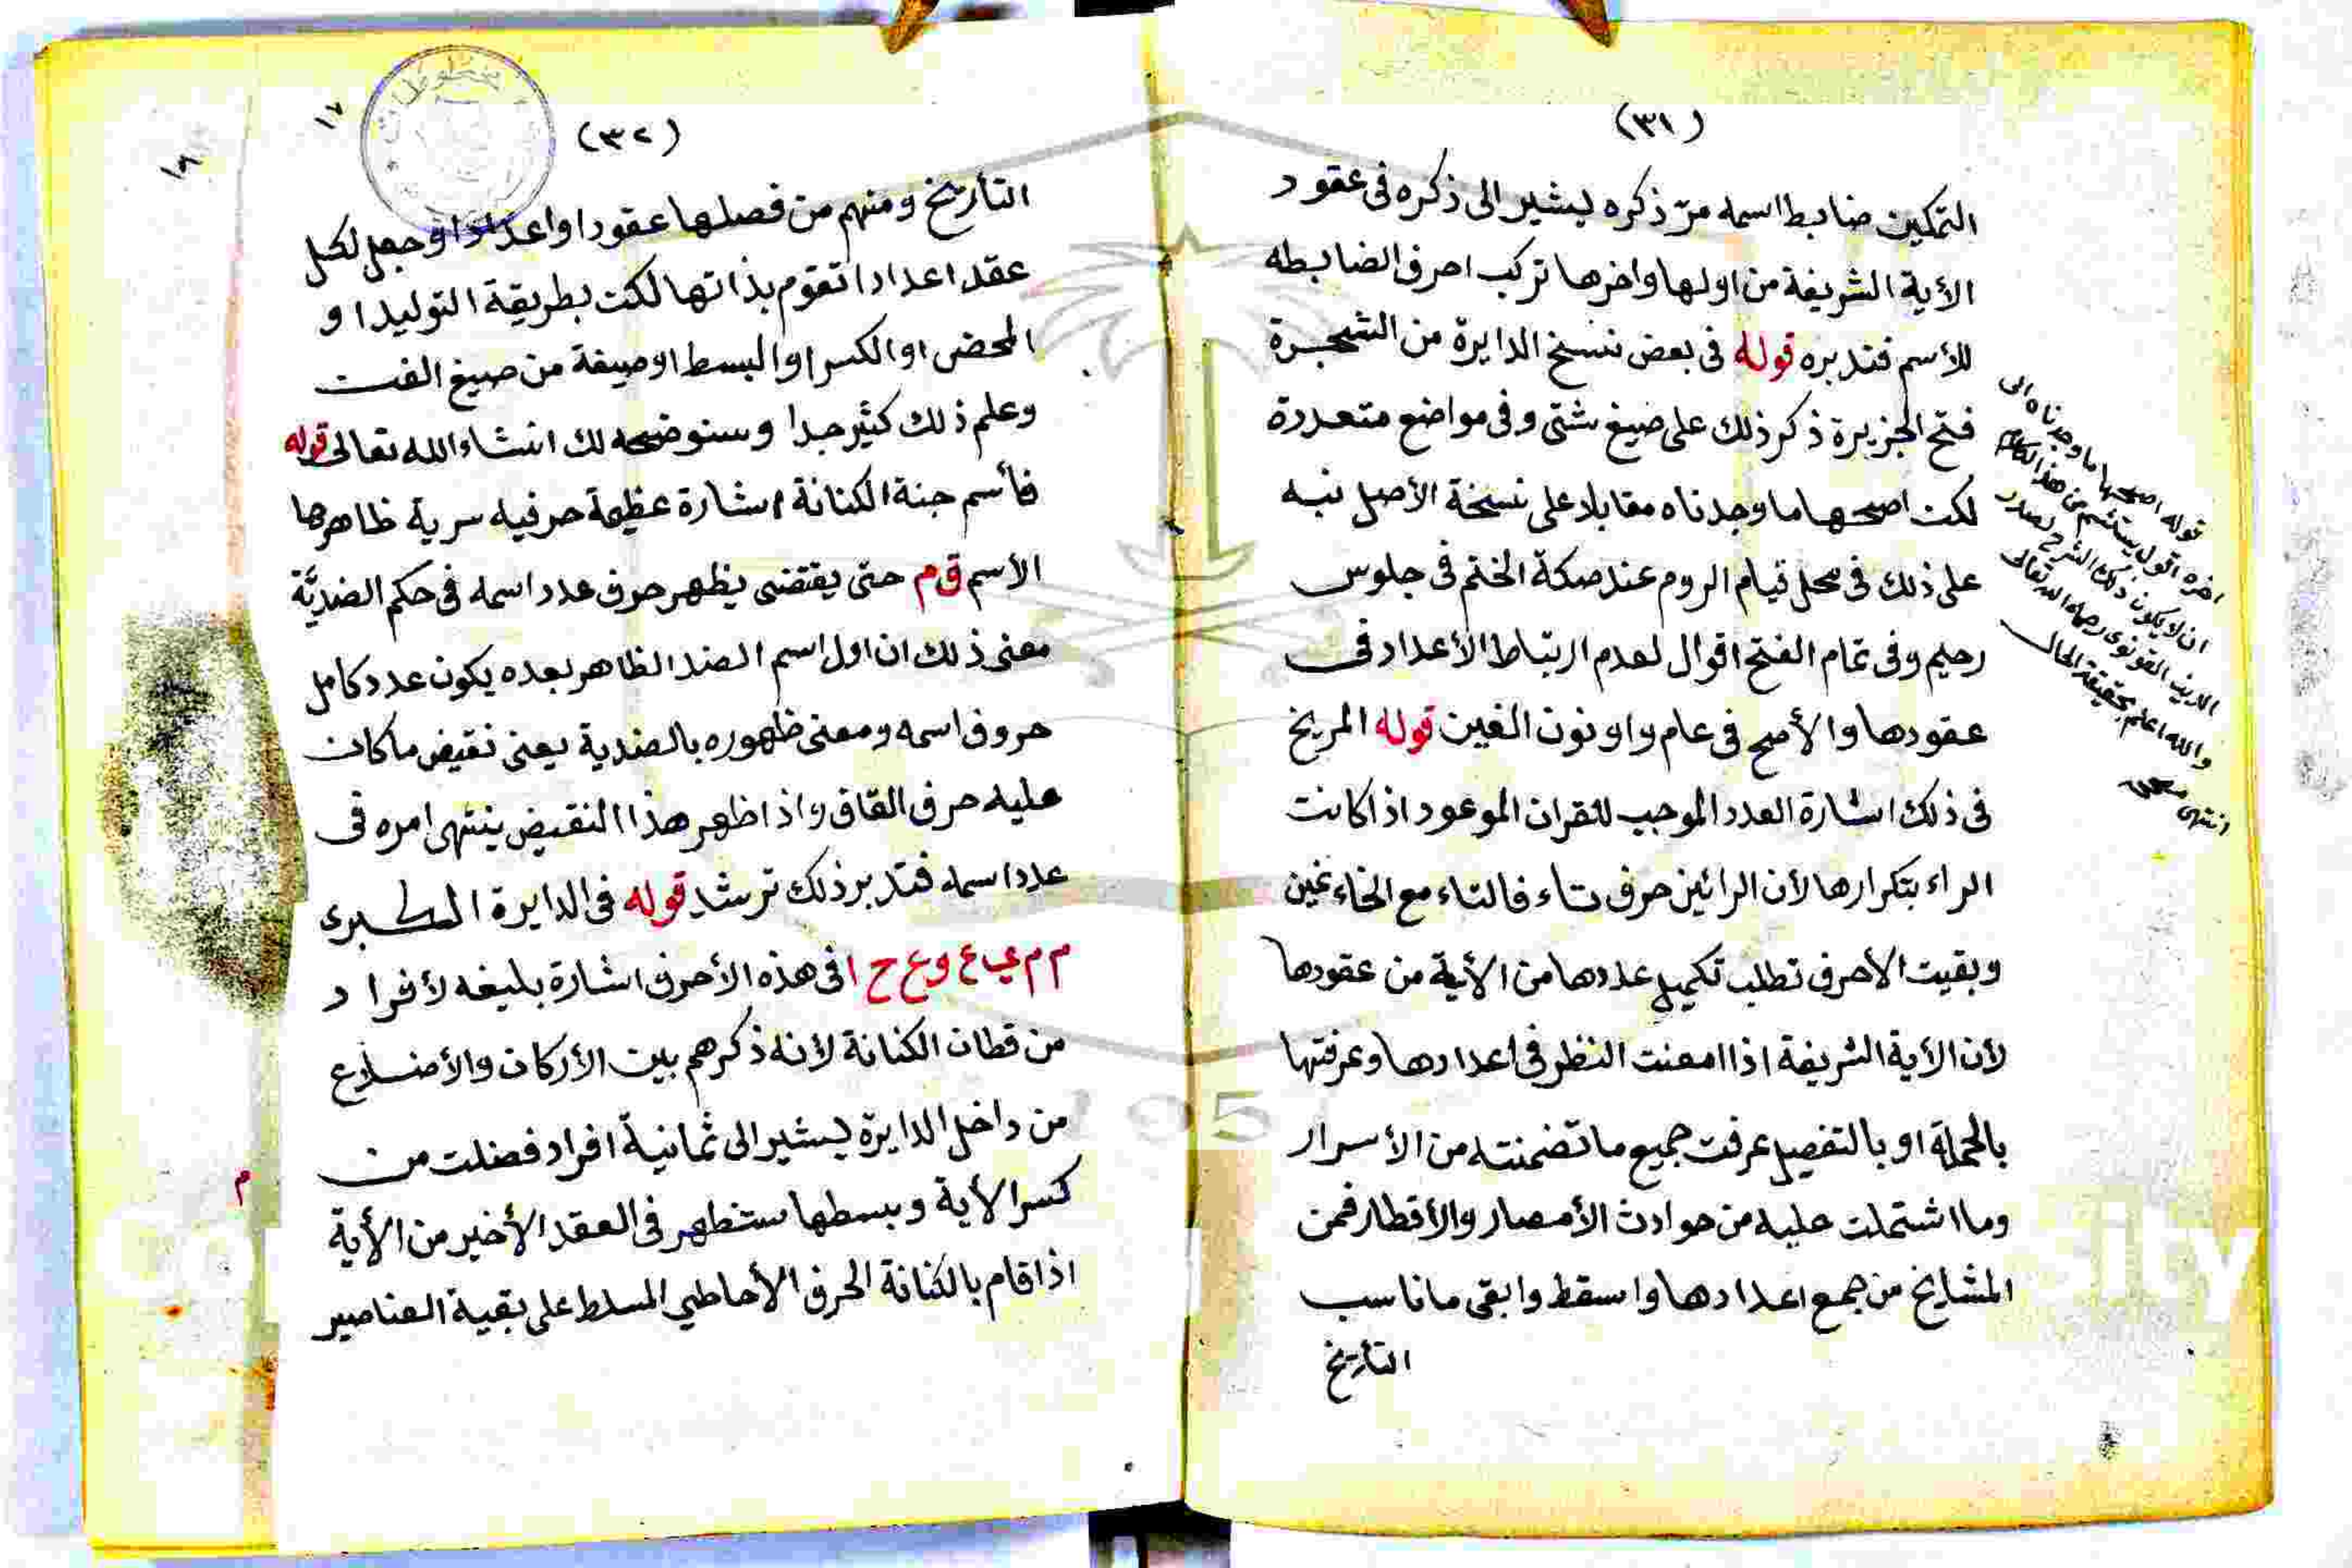 (٣١)
التمكين ضابط اسمه مرّ ذكره ليشير الى ذكره فى عقود
الأية الشريفة من اولها واخرها تركب احرف الضابطه
للأسم فتدبره قوله فى بعض نسخ الدايرة من الشجرة
فتح الجزيرة ذكر ذلك على صيغ شتى وفى مواضع متعددة
لكن اصحها ما وجدناه مقابلا على نسخة الأصل نبه
على ذلك فى محل قيام الروم عند صكة الختم فى جلوس
رحيم وفى تمام الفتح اقوال لعدم ارتباط الأعداد فى
عقودها والأصح فى عام واو ونون الغين قوله المريخ
فى ذلك اشارة العدد الموجب للقران الموعود اذا كانت
الراء بتكرارها لأن الرائين حرف تاء فالتاء مع الخاء غين
وبقيت الأحرف تطلب تكميل عددها من الأية من عقودها
لأن الأية الشريفة اذا امعنت النظر فى اعدادها وعرفتها
بالجملة او بالتفصيل عرفت جميع ما تضمنته من الأسرار
وما اشتملت عليه من حوادث الأمصار والأقطار فمن
المشايخ من جمع اعدادها واسقط وابقى ما ناسب
التأريخ
قوله اصحها ما وجدناه الى
اخره اقول يستلم من هذا الكلام
ان لا يكون ذلك الشرح لصدر
الدين القونوى رحمه الله تعالى
والله اعلم بحقيقة الحال
انتهى
(٣٢)
١٧
١٨
التأريخ ومنهم من فصلها عقودا واعدادا وجعل لكل
عقد اعدادا تقوم بذاتها لكن بطريقة التوليد او
المحض او الكسر او البسط او صيغة من صيغ الفن
وعلم ذلك كثير جدا وسنوضحه لك انشاء الله تعالى قوله
فأسم جنة الكنانة اشارة عظيمة حرفيه سرية ظاهرها
الأسم ق م حتى يقتضى يظهر حرف عدد اسمه فى حكم الضديَّة
معنى ذلك ان اول اسم الضد الظاهر بعده يكون عدد كامل
حروف اسمه ومعنى ظهوره بالضدية يعنى نقيض ما كان
عليه حرف القاف واذا ظهر هذا النقيض ينتهى امره فى
عدد اسمه فتدبر ذلك ترشد قوله فى الدايرة الكبرى
م م ي ع وع ح ا فى هذه الأحرف اشارة بليغه لأفراد
من قطان الكنانة لأنه ذكرهم بين الأركان والأضلاع
من داخل الدايرة ليشير الى ثمانية افراد فضلت من
كسر الأية وبسطها ستظهر فى العقد الأخير من الأية
اذا قام بالكنانة الحرف الأحاطي المسلط على بقية العناصير
م